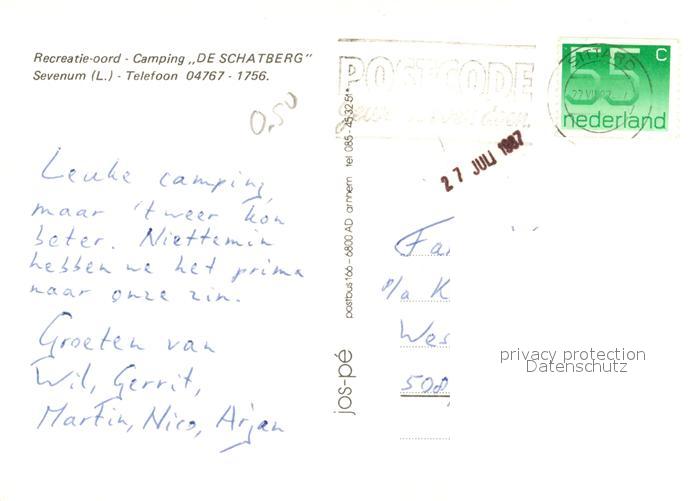 Recreatie-oord - Camping ,,DE SCHATBERG"
Sevenum (L.) - Telefoon 04767 - 1756.
0,50
Leuke camping,
maar 't weer kon
beter. Niettemin
hebben we het prima
naar onze zin.
Groeten van
Wil, Gerrit,
Martin, Nico, Arjan
jos-pé postbus 166 – 6800 AD arnhem tel 085 - 45 32 51*
POSTCODE
SITTARD
55 C
nederland
27 JULI 1987
Fa
p/a K
Wes
508
privacy protection
Datenschutz